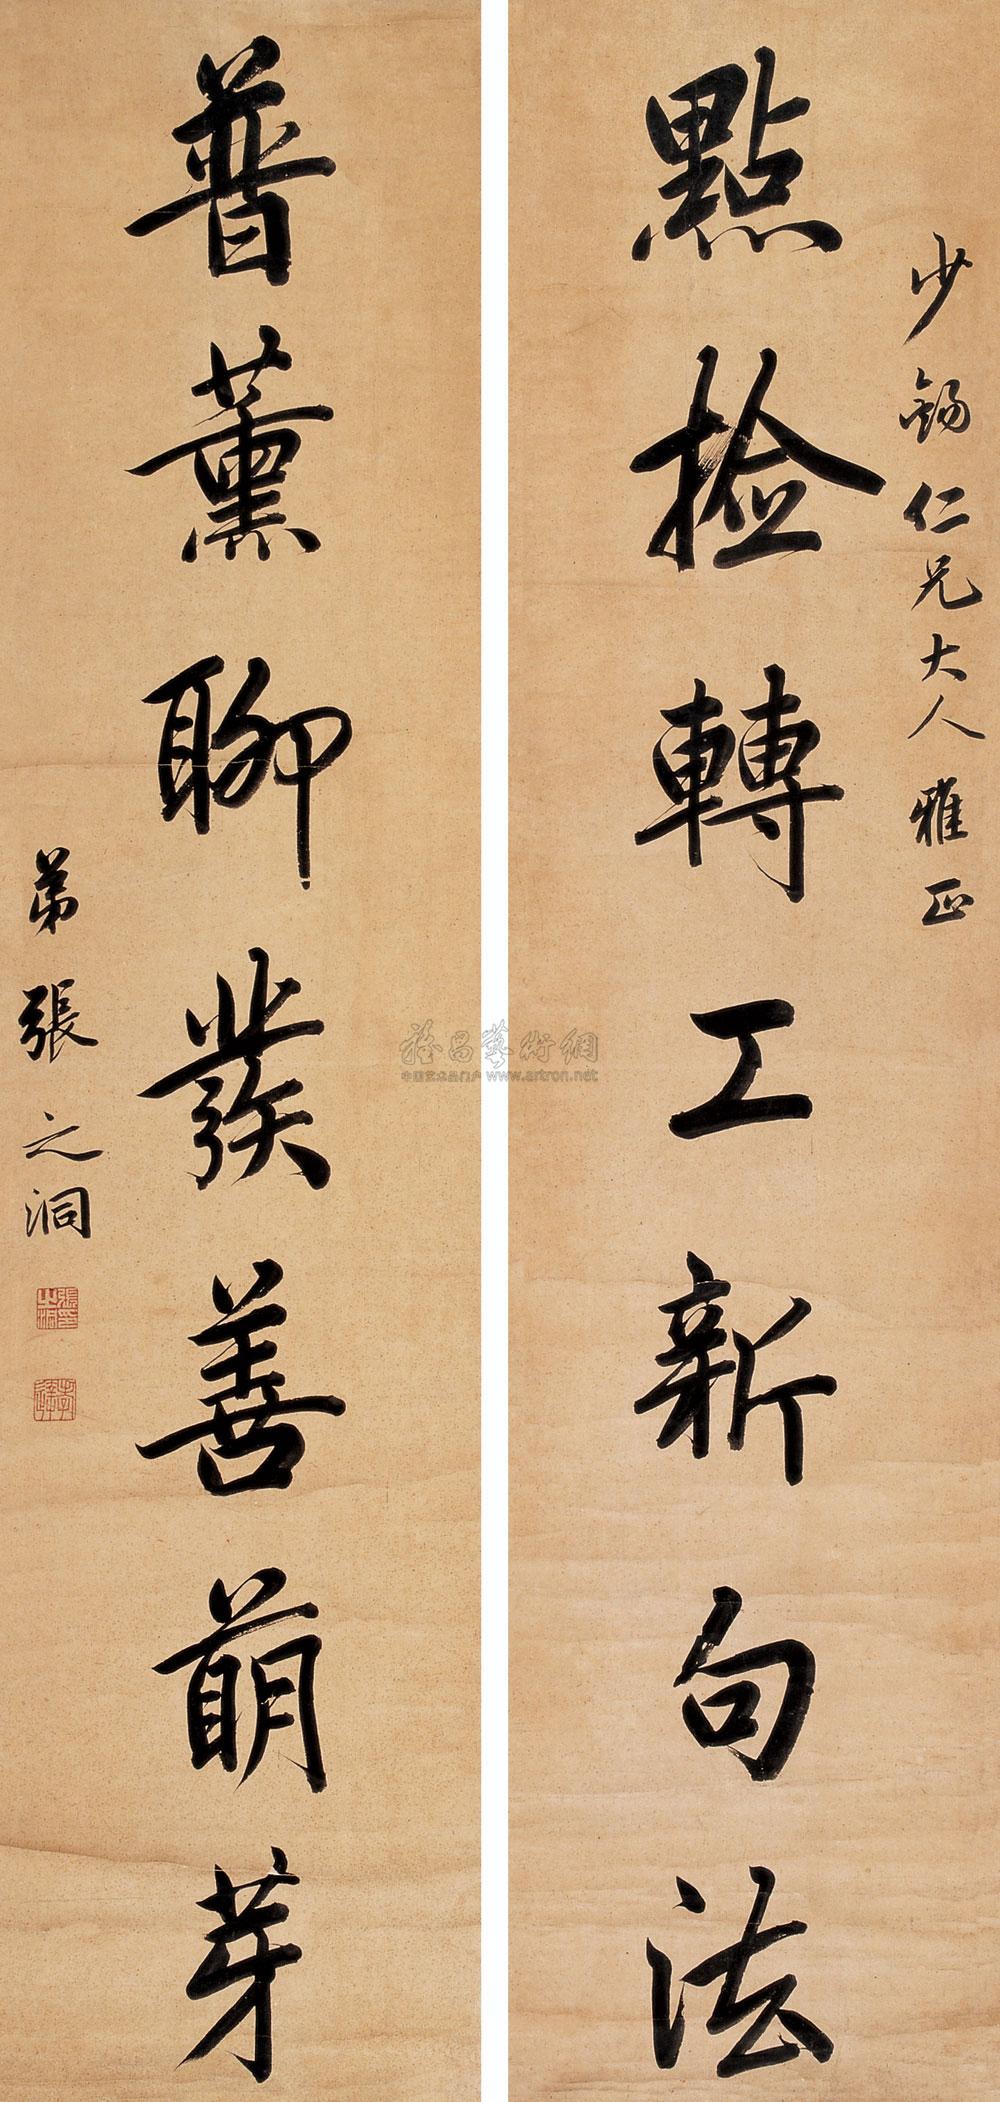 少錫仁兄大人雅正
點檢轉工新句法
普薰聊發善萌芽
弟張之洞
張之洞印
雅昌藝術網
中国艺术品门户 www.artron.net